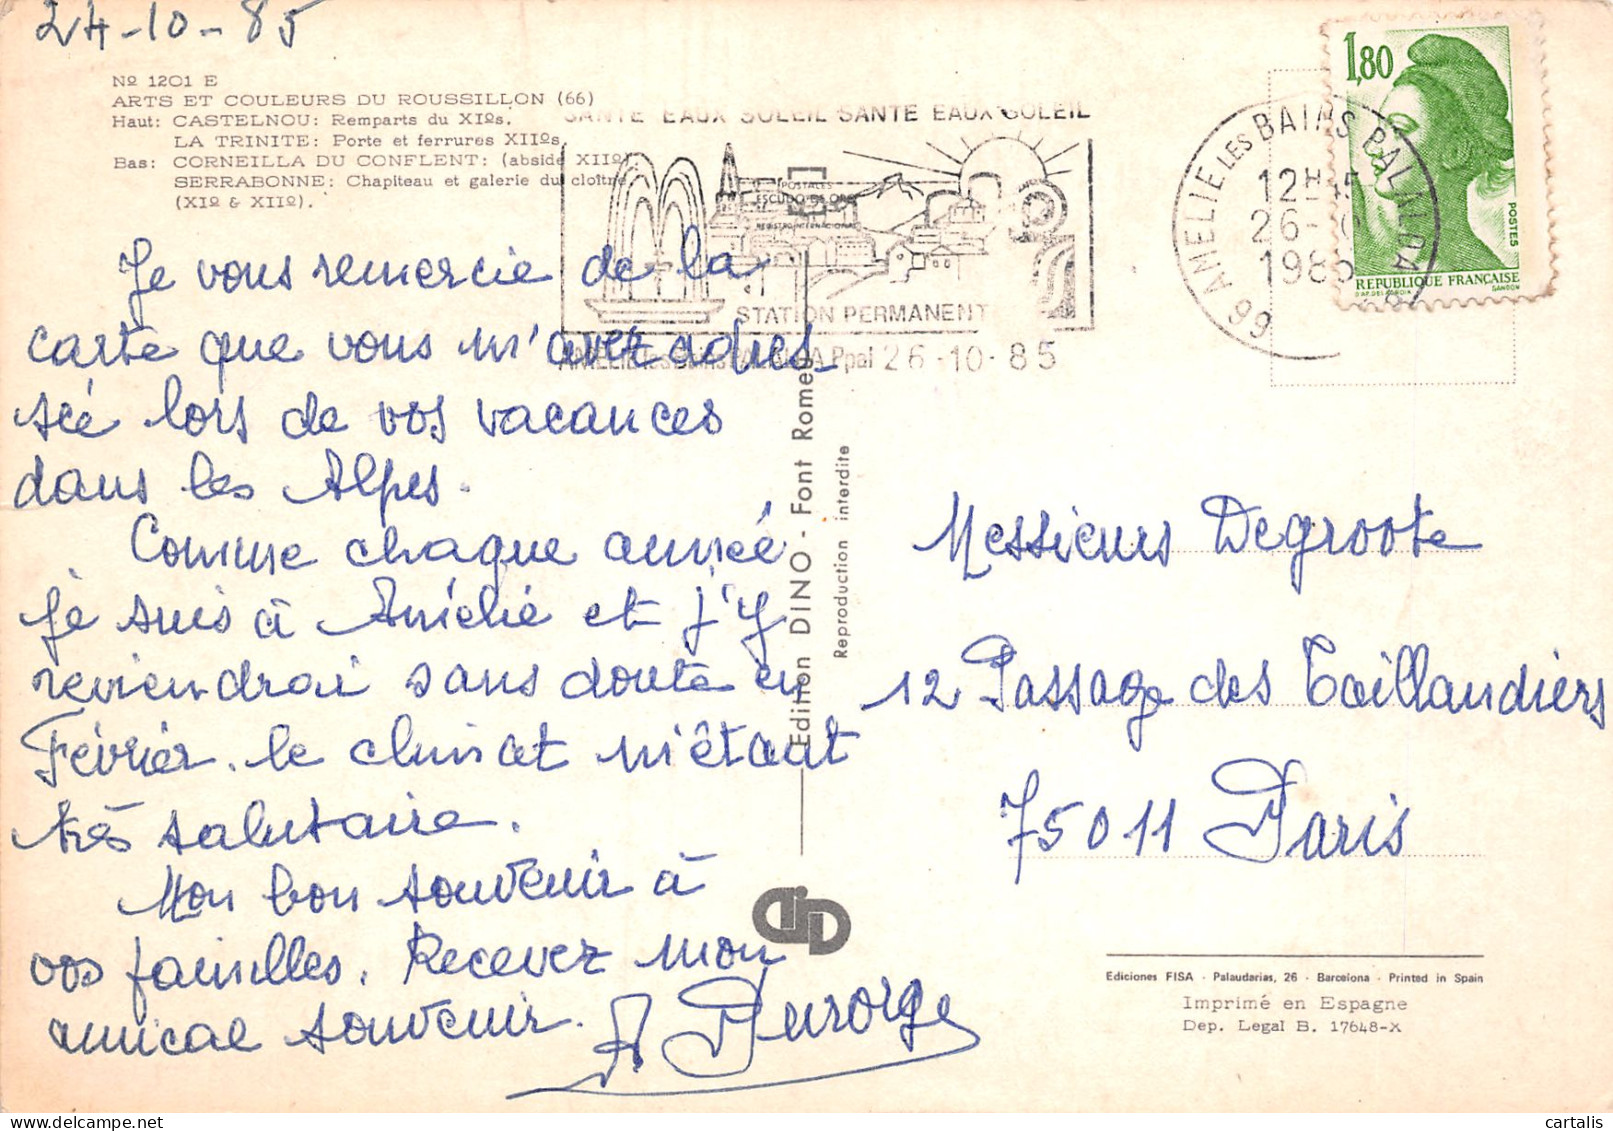 24-10-85
Nº 1201 E
ARTS ET COULEURS DU ROUSSILLON (66)
Haut: CASTELNOU: Remparts du XIºs.
LA TRINITE: Porte et ferrures XIIºs.
Bas: CORNEILLA DU CONFLENT: (abside XIIº).
SERRABONNE: Chapiteau et galerie du cloître
(XIº & XIIº).
SANTE EAUX SOLEIL SANTE EAUX SOLEIL
POSTALES
ESCUDO DE ORO
REGISTRO INTERNACIONAL
STATION PERMANENT
AMELIE les Bains PALALDA Ppal 26-10-85
66 AMELIE LES BAINS PALALDA
12H45
26-10
1985
1,80
POSTES
REPUBLIQUE FRANÇAISE
GANDON
Je vous remercie de la
carte que vous m'avez adres-
sée lors de vos vacances
dans les Alpes.
Comme chaque année
je suis à Amélie et j'y
reviendrai sans doute en
Février. le climat m'étant
très salutaire.
Mon bon souvenir à
vos familles. Recevez mon
amical souvenir.
Edition DINO - Font Romeu
Reproduction interdite
Messieurs Degroote
12 Passage des Taillandiers
75011 Paris
Ediciones FISA - Palaudarias, 26 - Barcelona - Printed in Spain
Imprimé en Espagne
Dep. Legal B. 17648-X
cartalis